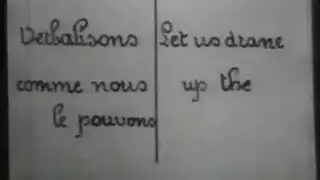 Verbalisons
comme nous
le pouvons
Let us drane
up the